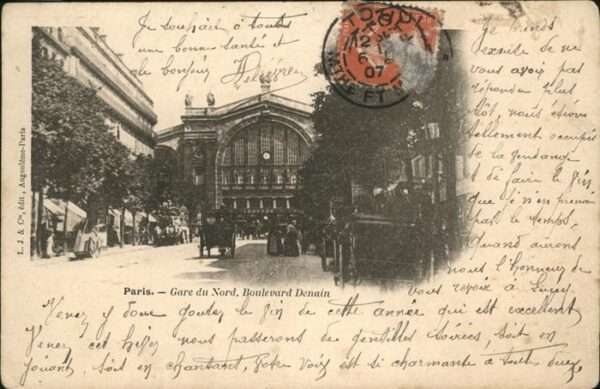 Je souhaite à toutes
une bonne santé et
bonjour
L. J. & Cie, édit., Angoulême-Paris
12
6
07
Je viens
m'excuse de ne
vous avoir pas
répondu plus
tôt, nous étions
tellement occupés
de la vendange
et de faire le vin
que je n'en prenais
pas le temps.
Quand aurons
nous l'honneur de
vous revoir à
Paris. — Gare du Nord, Boulevard Denain
Venez y donc goûter le vin de cette année qui est excellent
Venez cet hiver nous passerons de gentilles soirées, soit en
jouant, soit en chantant, votre voix est si charmante à tout